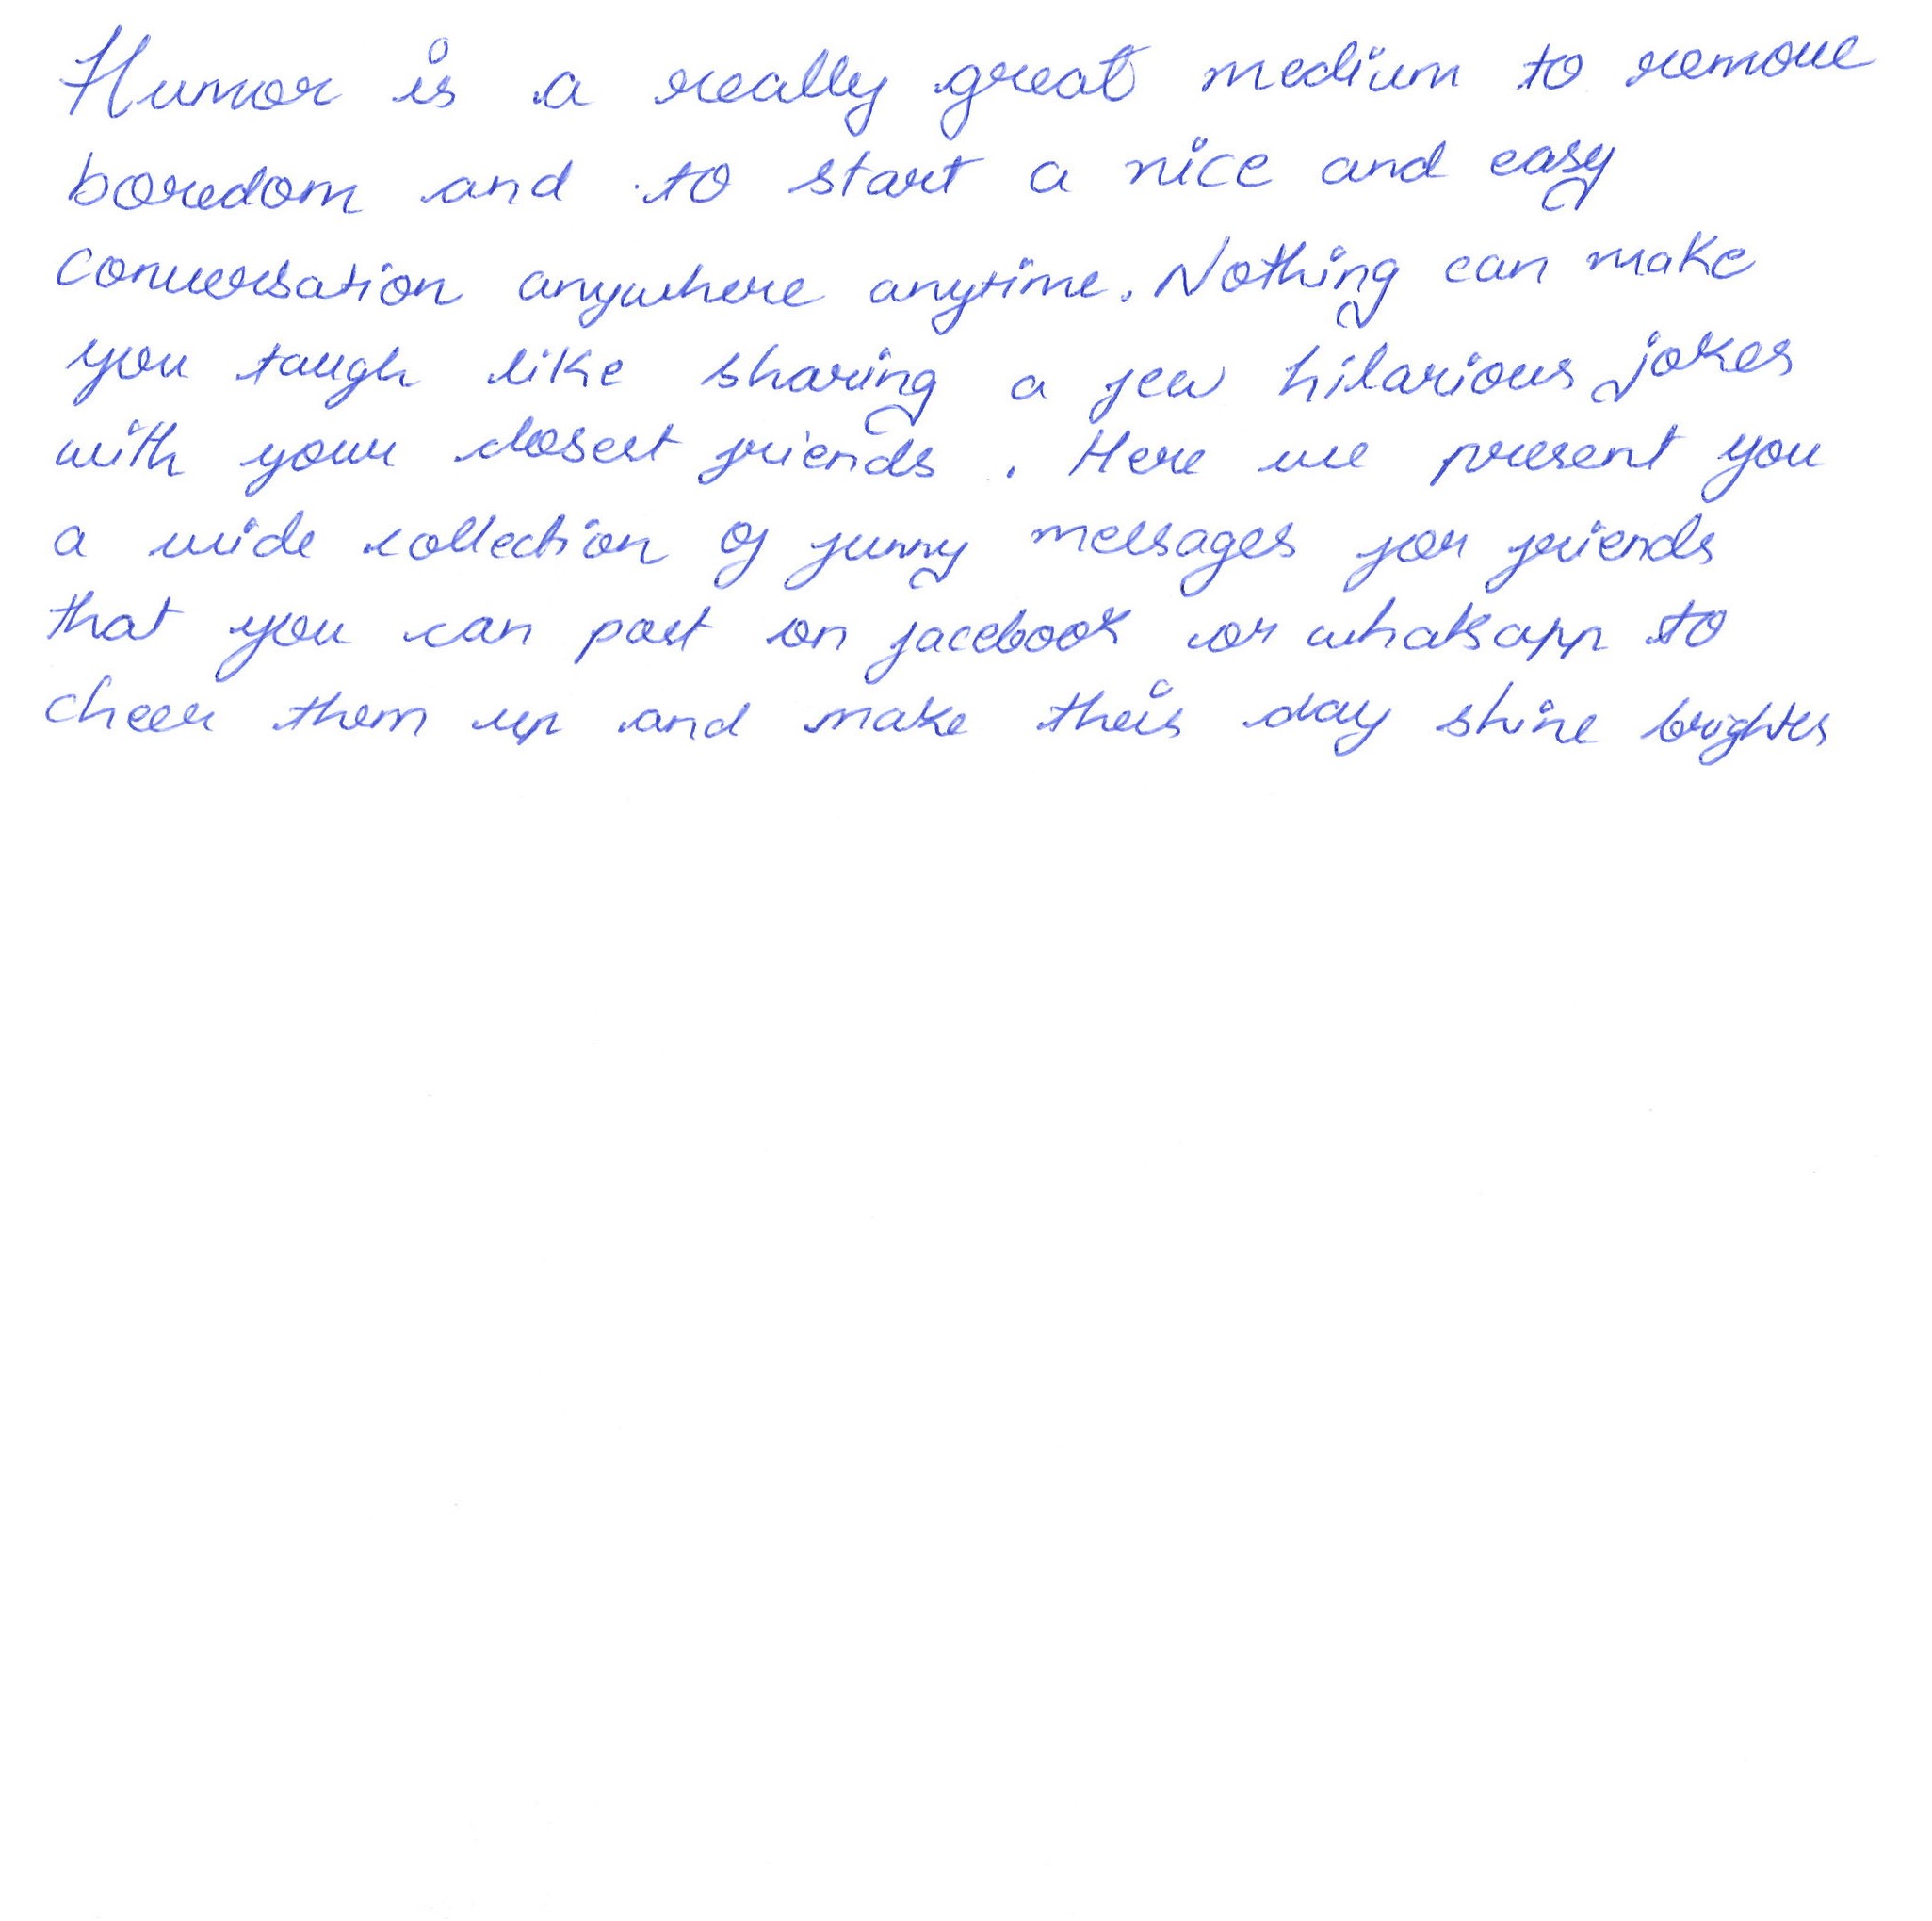 Humor is a really great medium to remove
boredom and to start a nice and easy
conversation anywhere anytime. Nothing can make
you taugh like sharing a few hilarious jokes
with your closest friends. Here we present you
a wide collection of funny messages for friends
that you can post on facebook or whatsapp to
cheer them up and make their day shine brighter